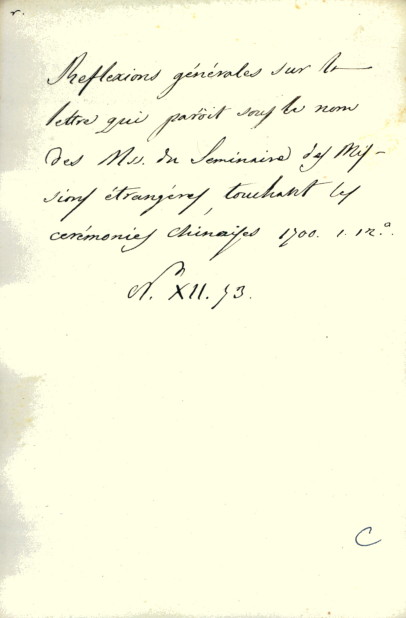 r.
Reflexions générales sur la
lettre qui paroit sous le nom
des Mss. du Seminaire des Mis-
sions étrangéres, touchant les
cerémonies Chinaises 1700. 1. 12.º
N. XII. 53.
C